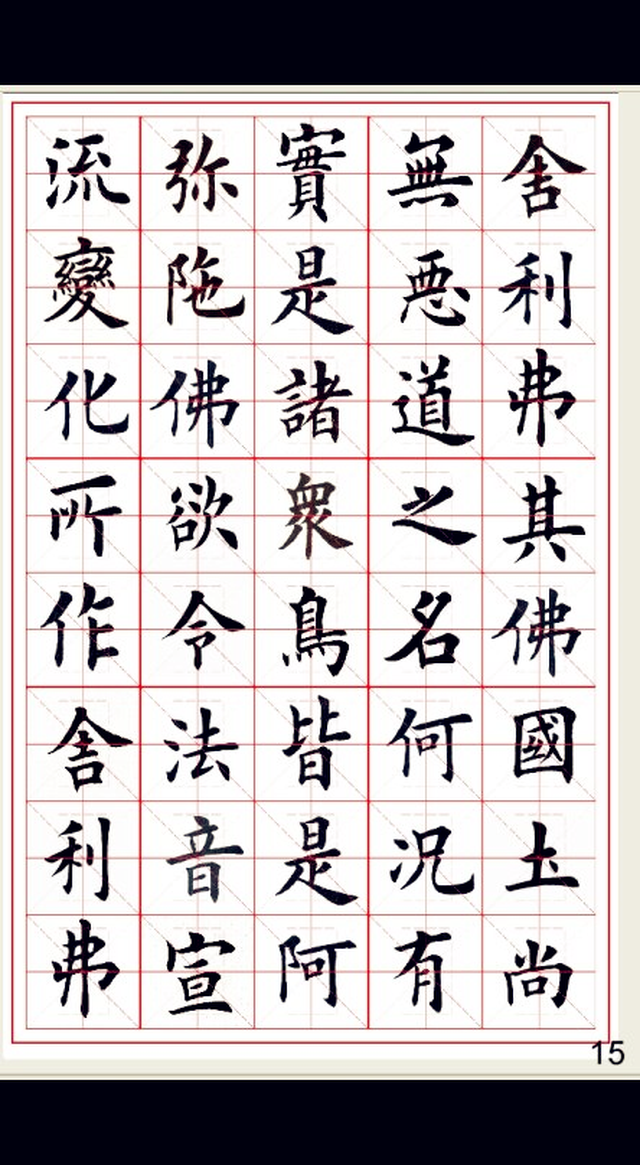 舍利弗其佛國土尚
無惡道之名何况有
實是諸衆鳥皆是阿
弥陁佛欲令法音宣
流變化所作舍利弗
15